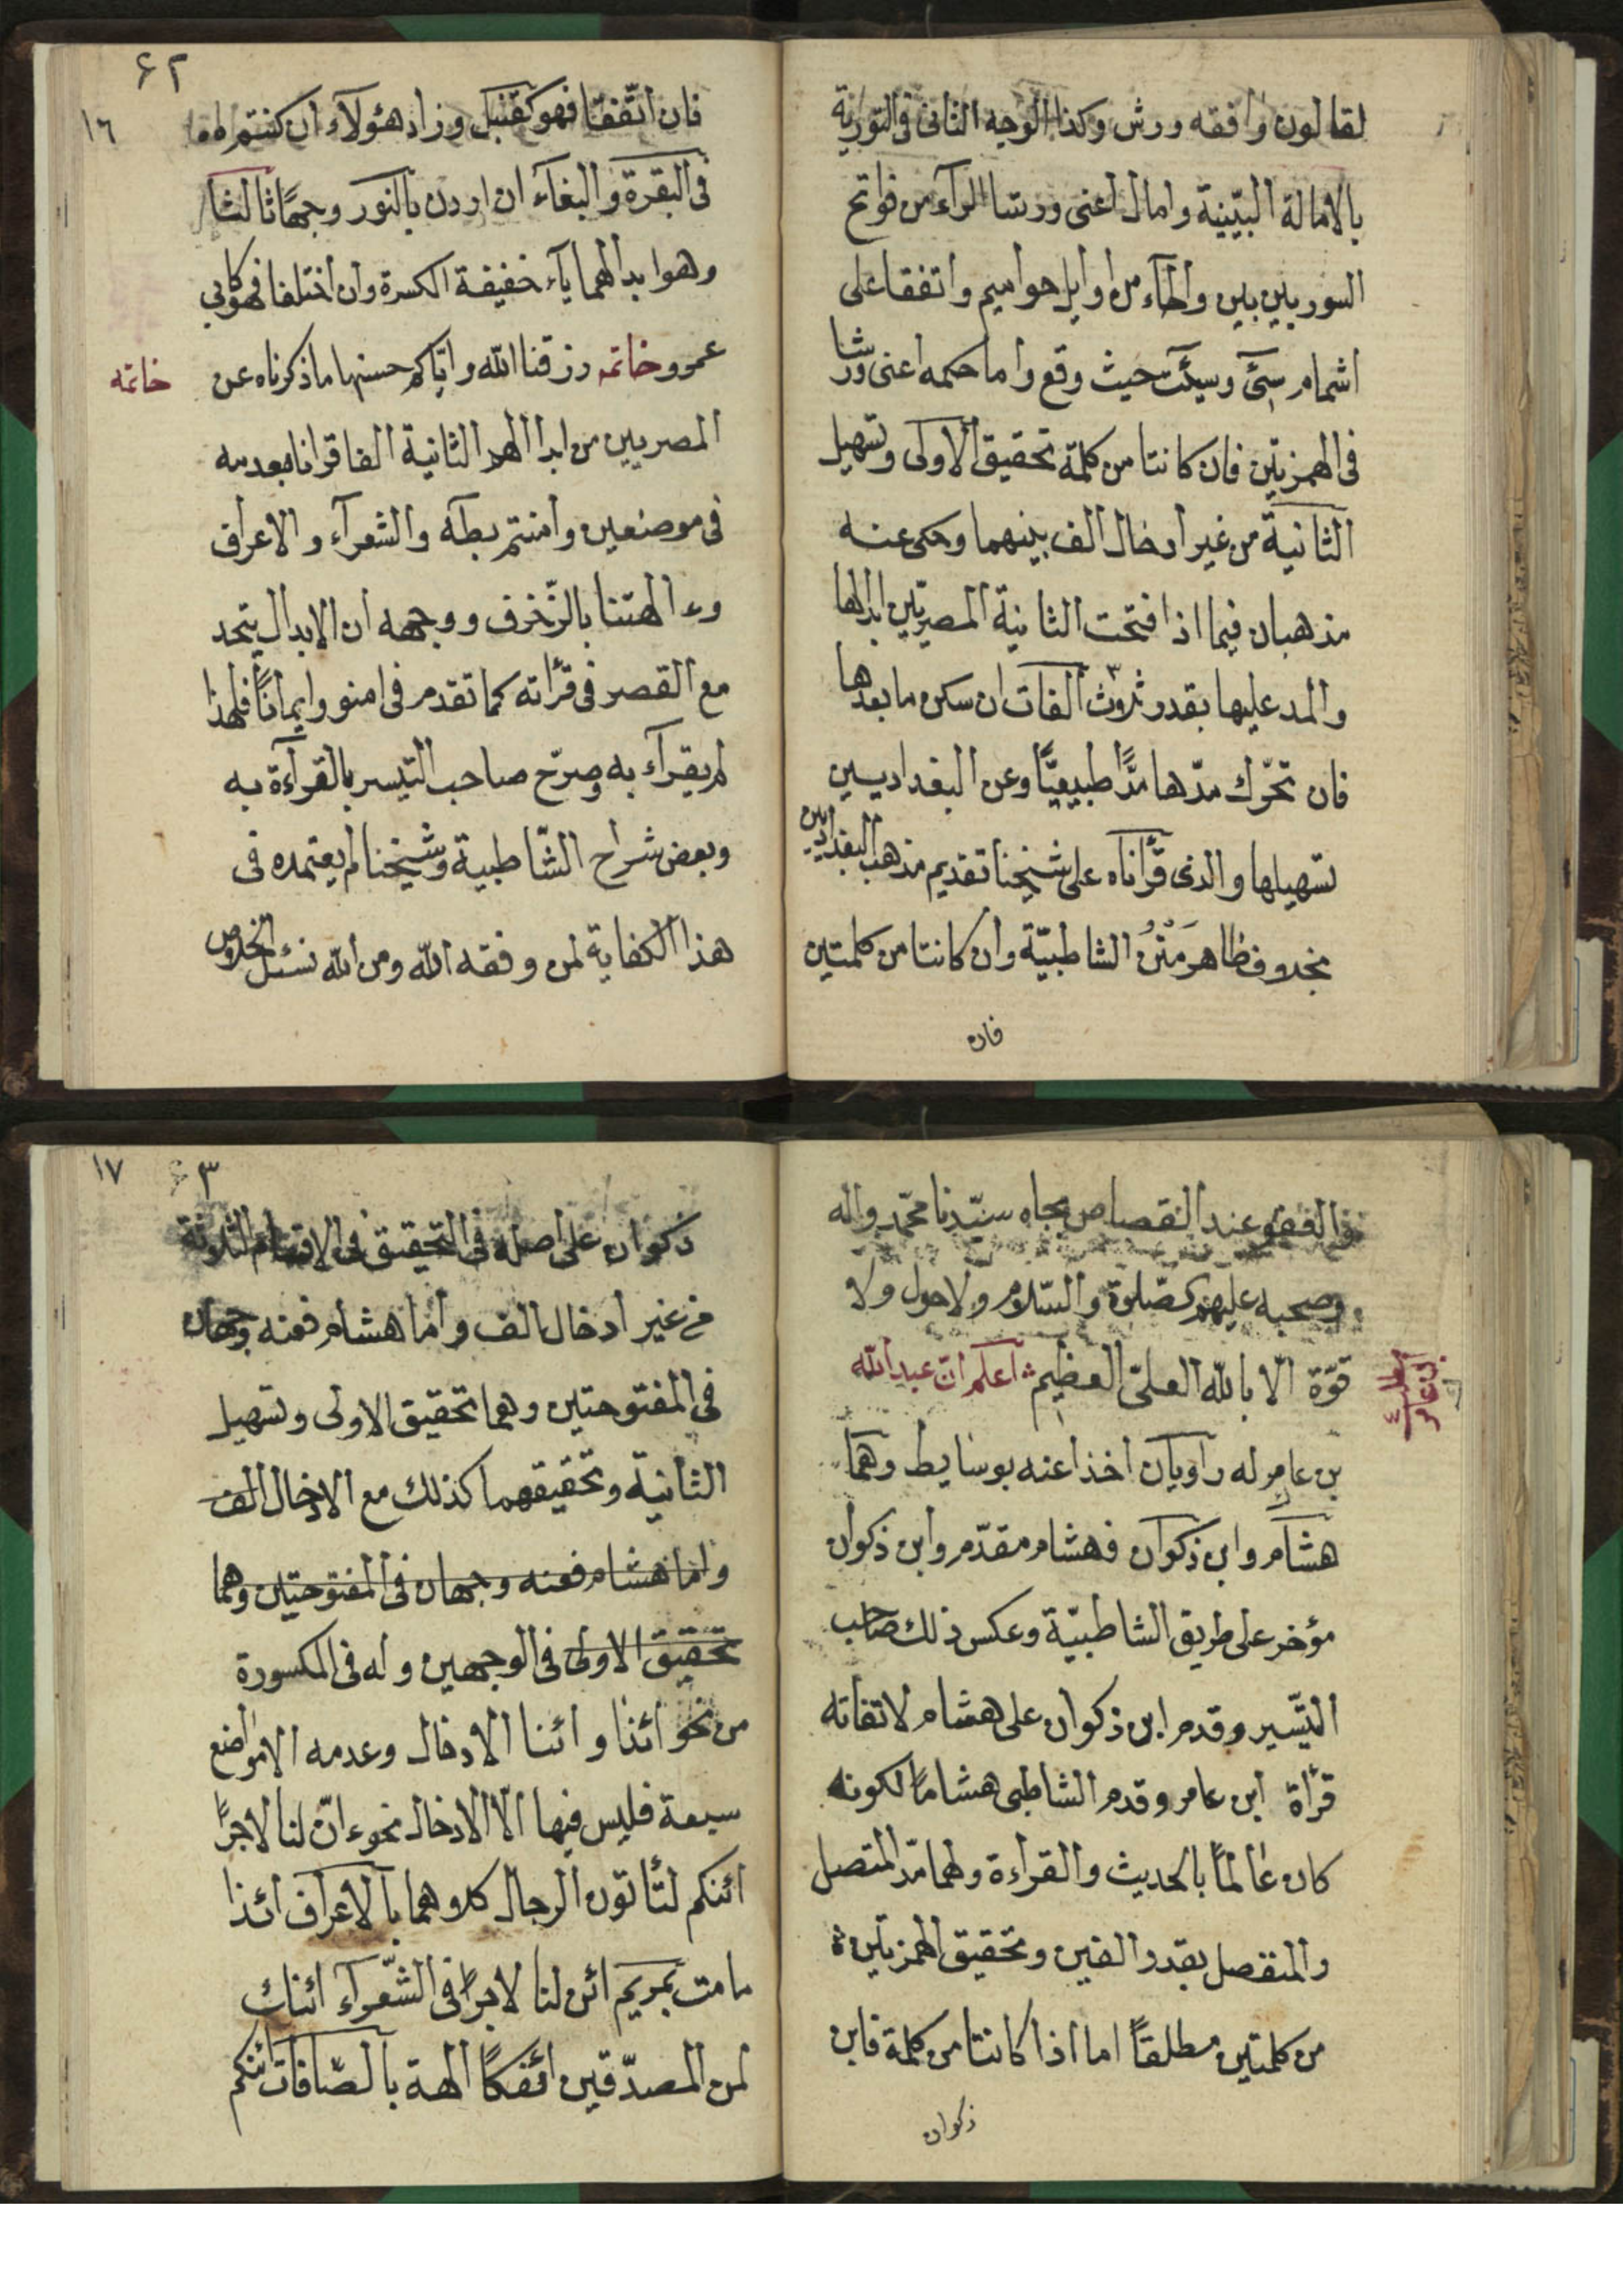 لقالون وافقه ورش وكذا الوجه الثانى فى التورية
بالامالة البينية وامال اعنى ورشا الرآء من فواتح
السور بين بين والحآء من اوايل حواميم واتفقا على
اشمام سئ وسيئت حيث وقع واما حكمه اعنى ورشا
فى الهمزتين فان كانتا من كلمة تحقيق الاولى وتسهيل
الثانية من غير ادخال الف بينهما وحكى عنه
مذهبان فيما اذا فتحت الثانية المصريين ابدالها
والمد عليها بقدر ثلوث الفات ان سكن ما بعدها
فان تحرّك مدّها مدًّا طبيعيًّا وعن البغداديين
تسهيلها والذى قرأناه على شيخنا تقديم مذهب البغداديين
بخلوف ظاهر مَتْنُ الشاطبيّة وان كانتا من كلمتين
فان
٦٢
١٦
فان اتّفقتا فهو كقنبل وزاد هئولآء ان كنتم
فى البقرة والبغآء ان اردن بالنور وجهًا ثالثا
وهو ابدالهما يآء خفيفة الكسرة وان اختلفا فهو كابى
عمرو خاتمه رزقنا الله وايّاكم حسنها ما ذكرناه عن
خاتمه
المصريين من ابدال الثانية الفا قرانا بعدمه
فى موضعين وامنتم بطه والشعرآء والاعراف
وء الهتنا بالزّخرف ووجهه ان الابدال يتحد
مع القصر فى قرأته كما تقدم فى امنو وايمانًا فلهذا
لم يقرآء به وصرّح صاحب التّيسر بالقرآءة به
وبعض شراح الشّاطبية وشيخنا لم يعتمده فى
هذا الكفاية لمن وفقه الله ومن الله نسئل الخلاص
والففو عند القصاص بجاه سيّدنا محمّد واله
وصحبه عليهم كصّلوة والسّلام ولا حول ولا
قوّة الا بالله العلىّ العظيم اعلم انّ عبد الله
بن عامر له راويان اخذا عنه بوسايط وهما
هشام وابن ذكوان فهشام مقدّم وابن ذكوان
مؤخر على طريق الشاطبيّة وعكس ذلك صاحب
التّسير وقدم ابن ذكوان على هشام لاتقاته
قرأة ابن عامر وقدم الشاطبى هشاما لكونه
كان عالمًا بالحديث والقراءة ولهما مدّ المتصل
والمنفصل بقدر الفين وتحقيق الهمزتين
من كلمتين مطلقًا اما اذا كانتا من كلمة فابن
ذكوان
٦٣
١٧
ذكوان على اصله فى التحقيق فى الاقسام الثلوثة
من غير ادخال الف واما هشام فعنه وجهان
فى المفتوحتين وهما تحقيق الاولى وتسهيل
الثانية وتحقيقهما كذلك مع الادخال الف
واما هشام فعنه وجهان فى المفتوحتين وهما
تحقيق الاولى فى الوجهين وله فى المكسورة
من نحو ائذا وائنا الادخال وعدمه الا مواضع
سبعة فليس فيها الّا الادخال نحو ءانّ لنا لاجرًا
ائنكم لتأتون الرجال كلوهما بالاعراف ائذا
ما مت بمريم ائن لنا لاجرًا فى الشّعرآء ائناك
لمن المصدّقين ائفكًا الهة بالصّافات ائنكم